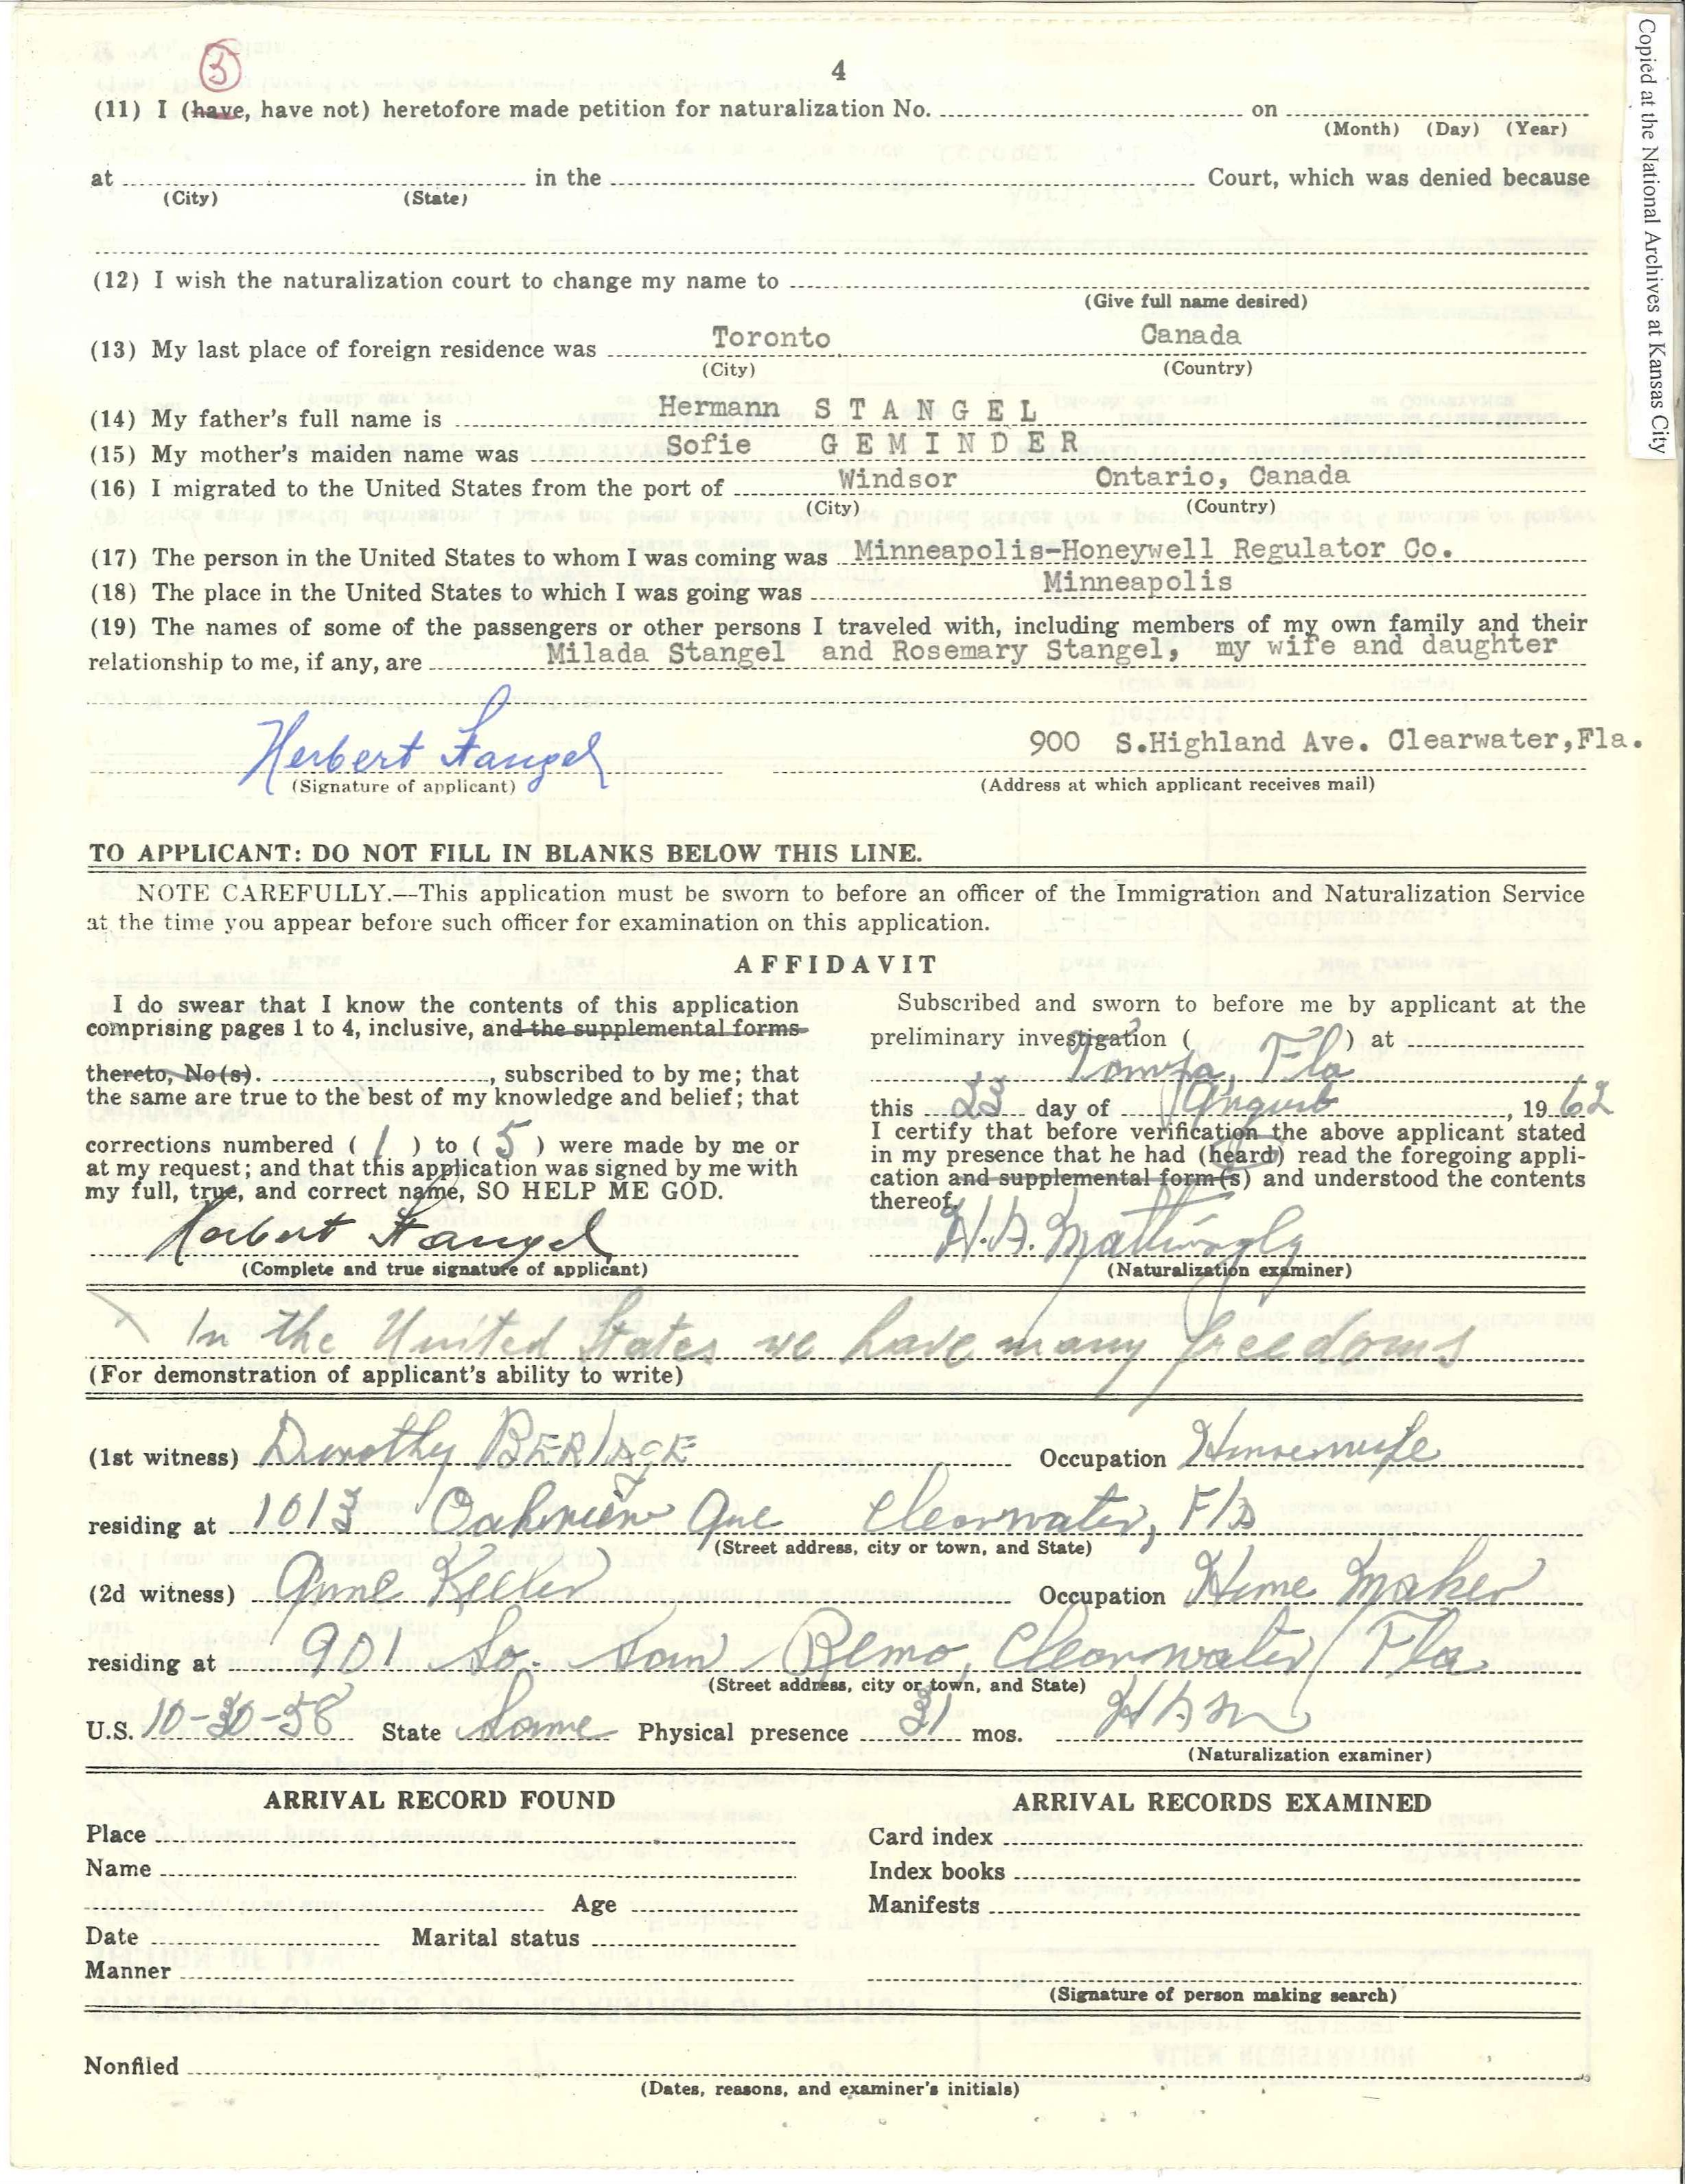 Copied at the National Archives at Kansas City
3
4
(11) I (have, have not) heretofore made petition for naturalization No. on
(Month) (Day) (Year)
at in the Court, which was denied because
(City) (State)
(12) I wish the naturalization court to change my name to
(Give full name desired)
(13) My last place of foreign residence was Toronto Canada
(City) (Country)
(14) My father's full name is Hermann S T A N G E L
(15) My mother's maiden name was Sofie G E M I N D E R
(16) I migrated to the United States from the port of Windsor Ontario, Canada
(City) (Country)
(17) The person in the United States to whom I was coming was Minneapolis-Honeywell Regulator Co.
(18) The place in the United States to which I was going was Minneapolis
(19) The names of some of the passengers or other persons I traveled with, including members of my own family and their
relationship to me, if any, are Milada Stangel and Rosemary Stangel, my wife and daughter
Herbert Stangel 900 S.Highland Ave. Clearwater,Fla.
(Signature of applicant) (Address at which applicant receives mail)
TO APPLICANT: DO NOT FILL IN BLANKS BELOW THIS LINE.
NOTE CAREFULLY.—This application must be sworn to before an officer of the Immigration and Naturalization Service
at the time you appear before such officer for examination on this application.
AFFIDAVIT
I do swear that I know the contents of this application
comprising pages 1 to 4, inclusive, and the supplemental forms
thereto, No(s). , subscribed to by me; that
the same are true to the best of my knowledge and belief; that
corrections numbered ( 1 ) to ( 5 ) were made by me or
at my request; and that this application was signed by me with
my full, true, and correct name, SO HELP ME GOD.
Herbert Stangel
(Complete and true signature of applicant)
Subscribed and sworn to before me by applicant at the
preliminary investigation ( ) at
Tampa, Fla
this 23 day of August, 19 62
I certify that before verification the above applicant stated
in my presence that he had (heard) read the foregoing appli-
cation and supplemental form(s) and understood the contents
thereof.
H.A. Mattingly
(Naturalization examiner)
In the United States we have many freedoms
(For demonstration of applicant's ability to write)
(1st witness) Dorothy BERIAGE Occupation Housewife
residing at 1013 Oakview Ave Clearwater, Fla
(Street address, city or town, and State)
(2d witness) Anne Keller Occupation Home Maker
residing at 901 So. San Remo, Clearwater, Fla
(Street address, city or town, and State)
U.S. 10-30-58 State Same Physical presence 31 mos. HAM
(Naturalization examiner)
ARRIVAL RECORD FOUND
Place
Name
Age
Date Marital status
Manner
ARRIVAL RECORDS EXAMINED
Card index
Index books
Manifests
(Signature of person making search)
Nonfiled
(Dates, reasons, and examiner's initials)